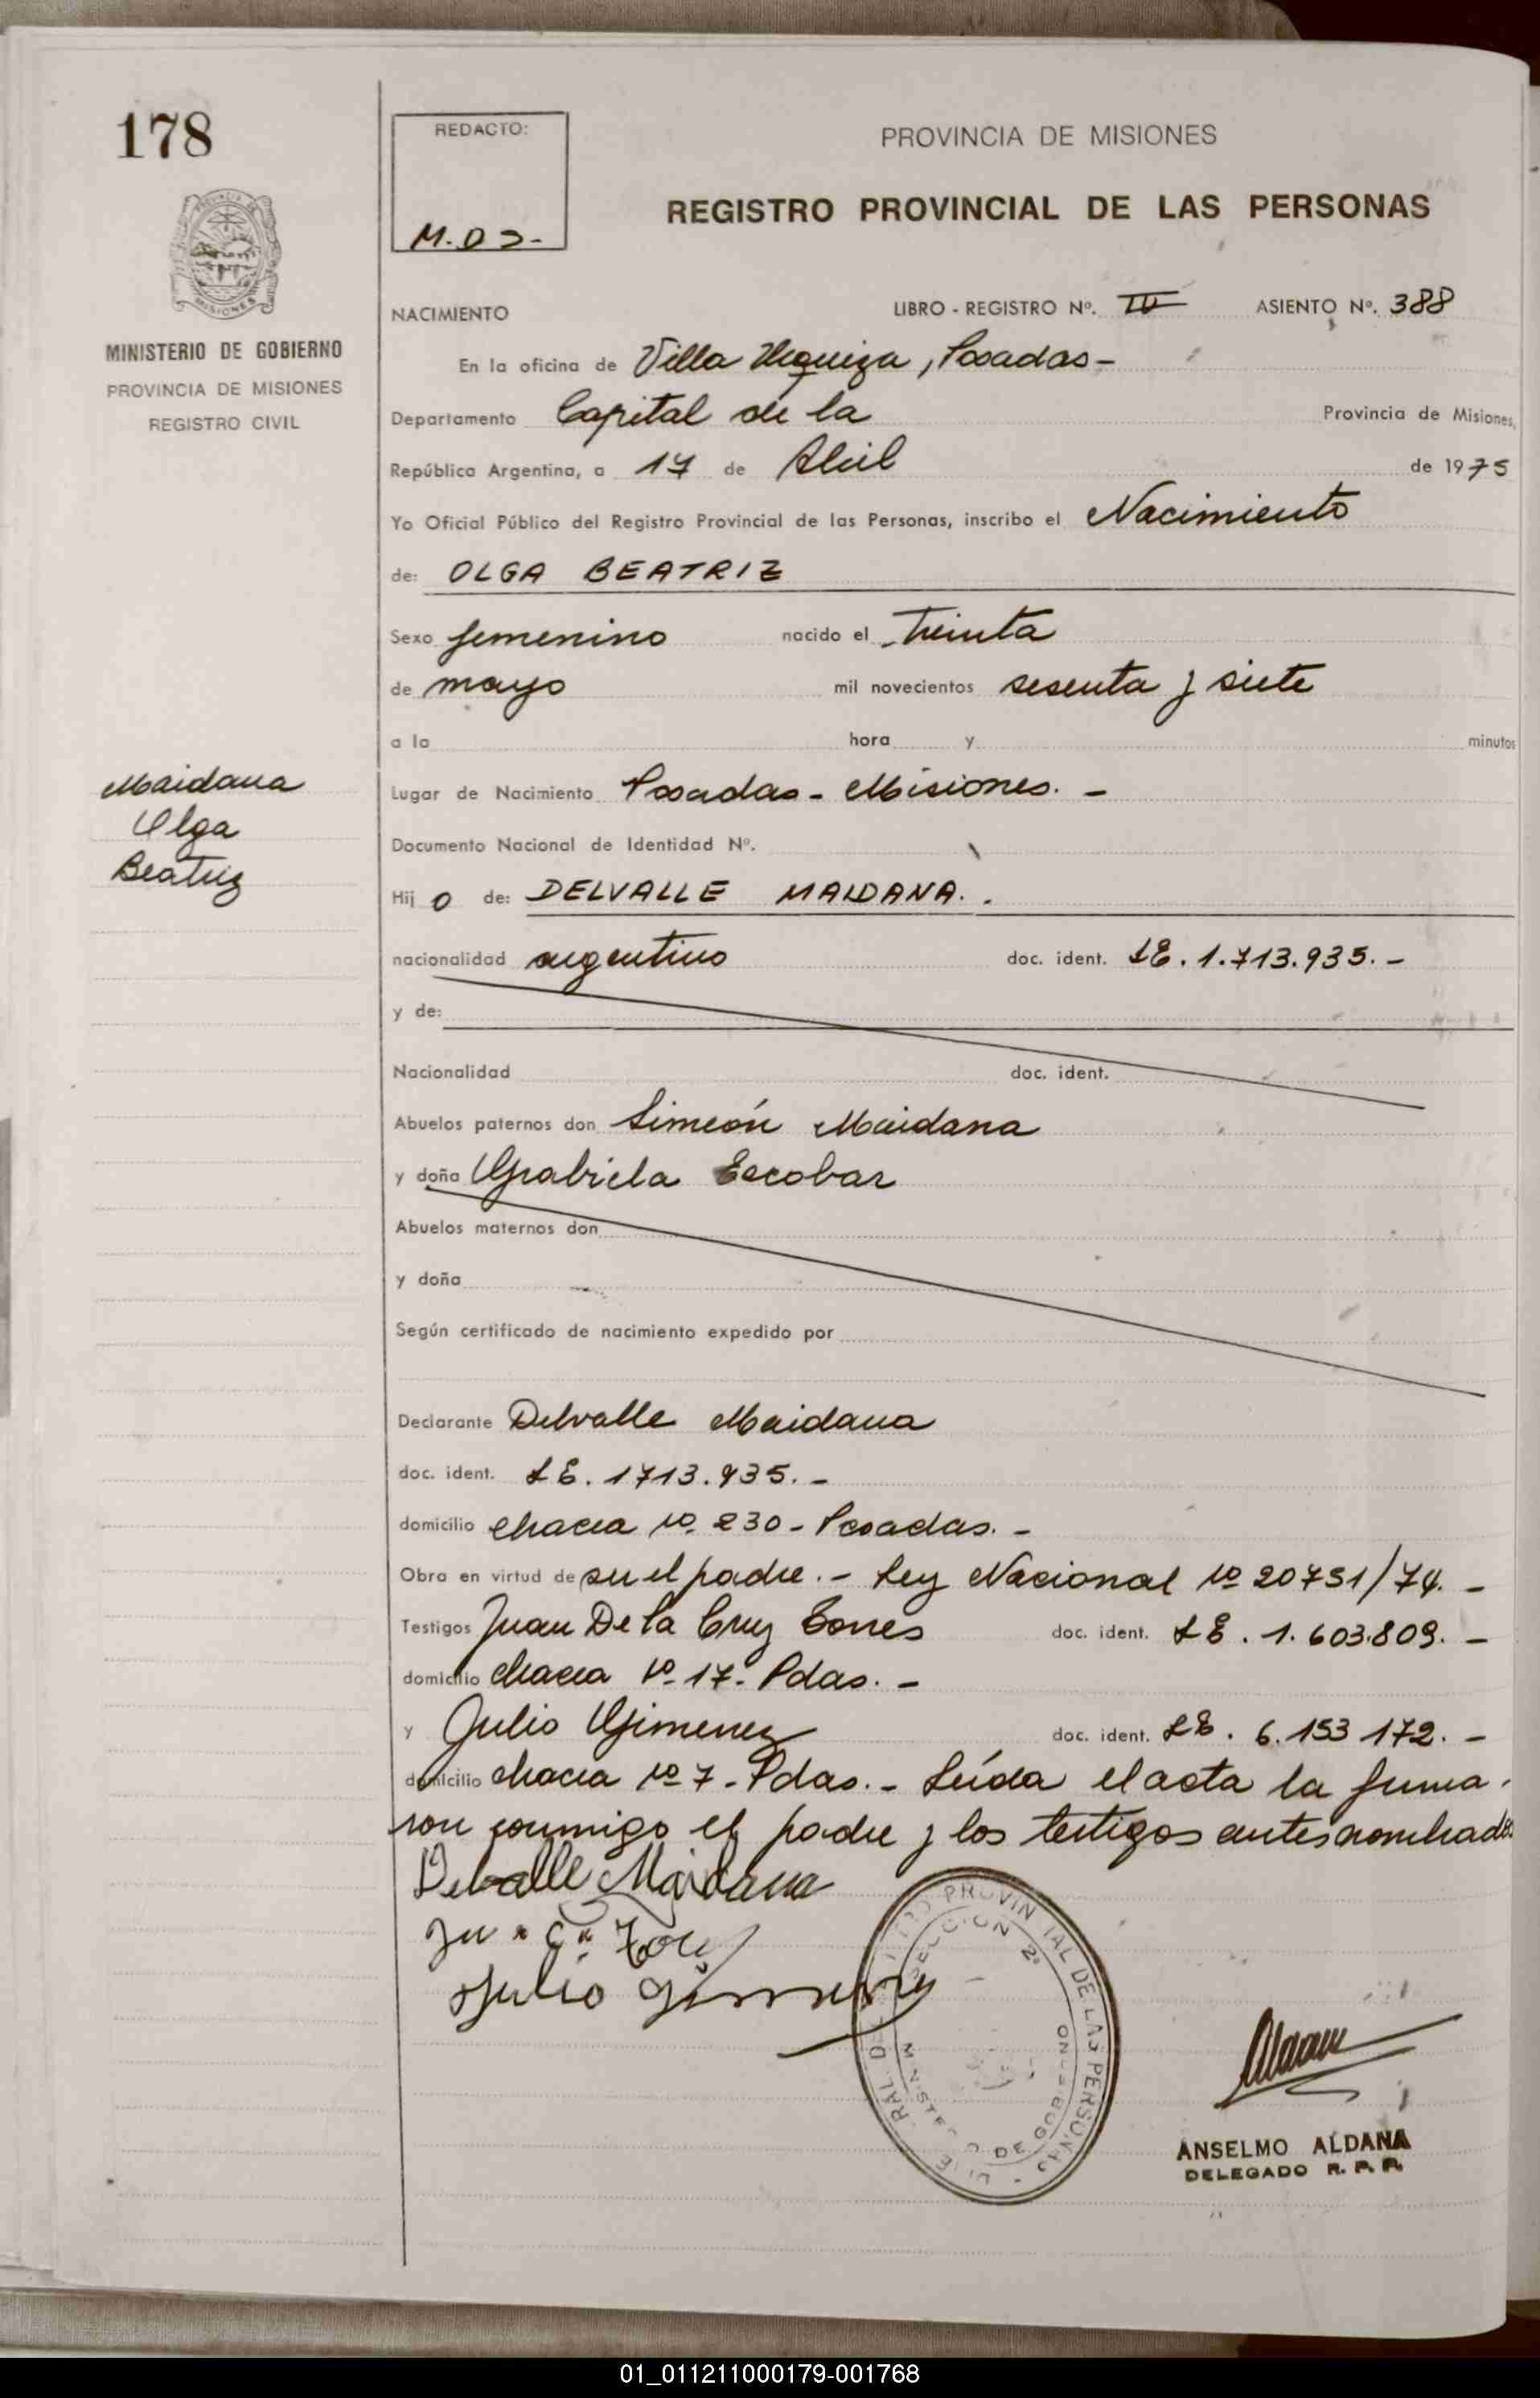 178
PROVINCIA DE MISIONES
MINISTERIO DE GOBIERNO
PROVINCIA DE MISIONES
REGISTRO CIVIL
Maidana
Olga
Beatriz
REDACTO:
PROVINCIA DE MISIONES
REGISTRO PROVINCIAL DE LAS PERSONAS
NACIMIENTO LIBRO - REGISTRO Nº. III ASIENTO Nº. 388
En la oficina de Villa Urquiza, Posadas-
Departamento Capital de la Provincia de Misiones,
República Argentina, a 17 de Abril de 1975
Yo Oficial Público del Registro Provincial de las Personas, inscribo el Nacimiento
de: OLGA BEATRIZ
Sexo femenino nacido el treinta
de mayo mil novecientos sesenta y siete
a la hora y minutos
Lugar de Nacimiento Posadas - Misiones. -
Documento Nacional de Identidad Nº.
Hij o de: DELVALLE MAIDANA. .
nacionalidad argentino doc. ident. LE. 1.713.935. -
y de:
Nacionalidad doc. ident.
Abuelos paternos don Simeón Maidana
y doña Grabiela Escobar
Abuelos maternos don
y doña
Según certificado de nacimiento expedido por
Declarante Delvalle Maidana
doc. ident. LE. 1713.935. -
domicilio chacra Nº 230 - Posadas. -
Obra en virtud de ser el padre. - Ley Nacional Nº 20751/74. -
Testigos Juan De la Cruz Torres doc. ident. LE. 1.603.809. -
domicilio chacra Nº 17. Pdas. -
y Julio Gimenez doc. ident. LE. 6.153 172. -
domicilio chacra Nº 7 - Pdas. - Leída el acta la firma-
ron conmigo el padre y los testigos antes nombrados
Delvalle Maidana
Julio Gimenez
PROVINCIAL DE LAS PERSONAS
SECCION 2ª
MINISTERIO DE GOBIERNO
ANSELMO ALDANA
DELEGADO R. P. P.
01_011211000179-001768